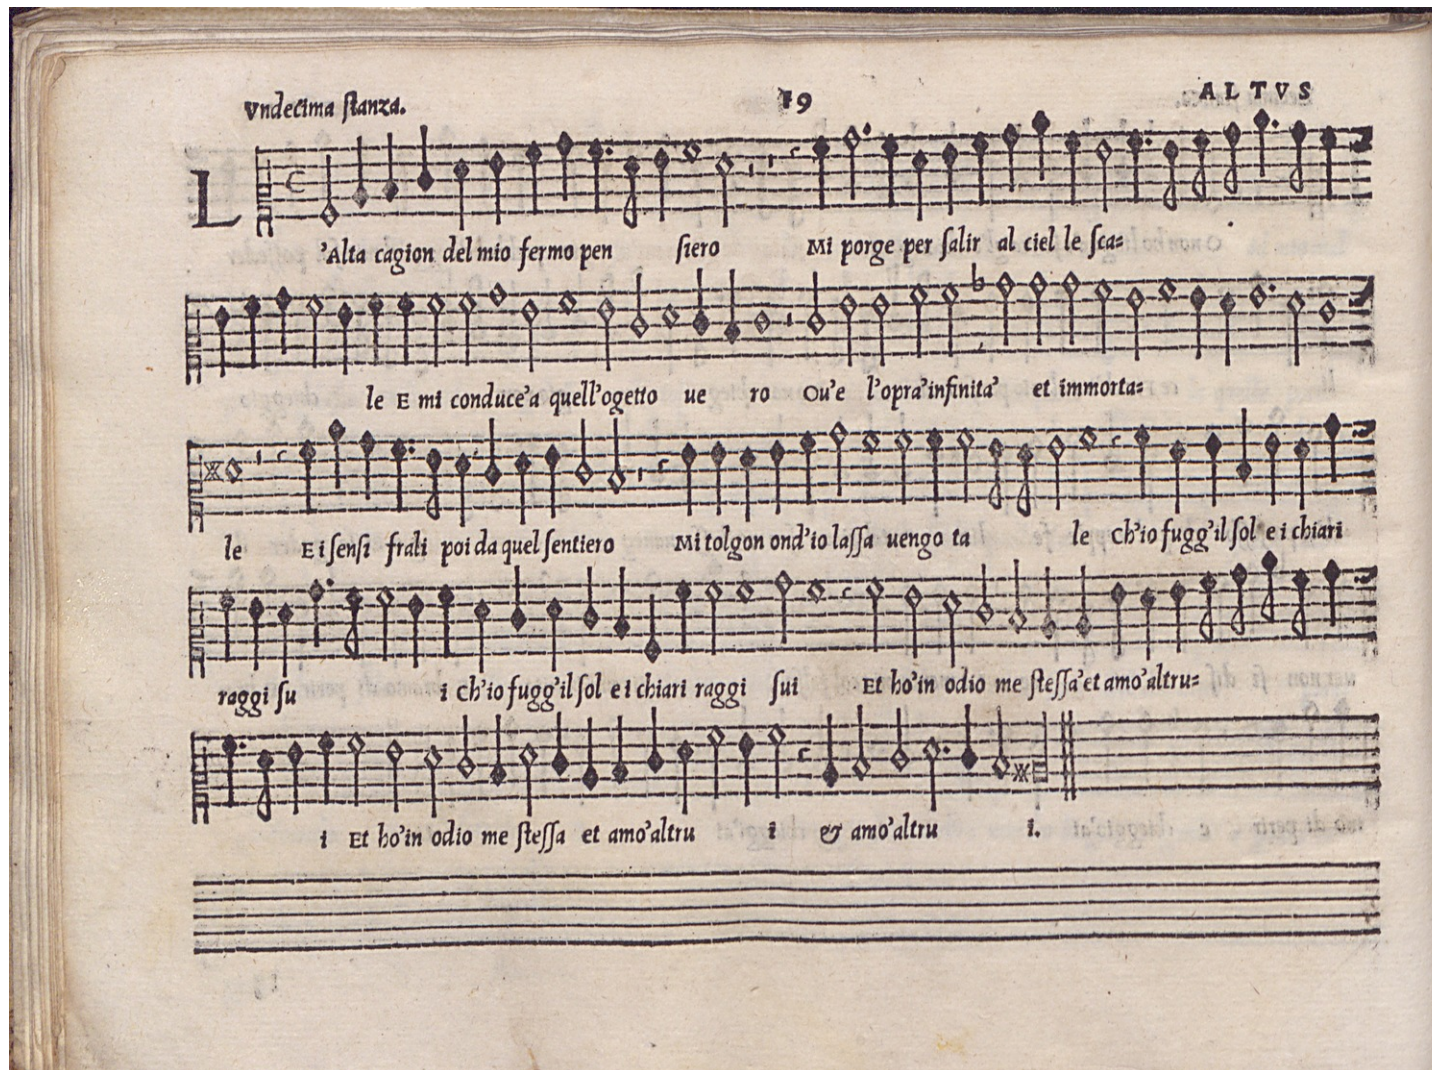 Vndecima ſtanza. 19 ALTVS
L'Alta cagion del mio fermo pen ſiero Mi porge per ſalir al ciel le ſca=
le E mi conduce'a quell'ogetto ue ro Ou'e l'opra'infinita' et immorta=
le E i ſenſi frali poi da quel ſentiero Mi tolgon ond'io laſſa uengo ta le Ch'io fugg'il ſol e i chiari
raggi ſu i Ch'io fugg'il ſol e i chiari raggi ſui Et ho'in odio me ſteſſa'et amo'altru=
i Et ho'in odio me ſteſſa et amo'altru i & amo'altru i.